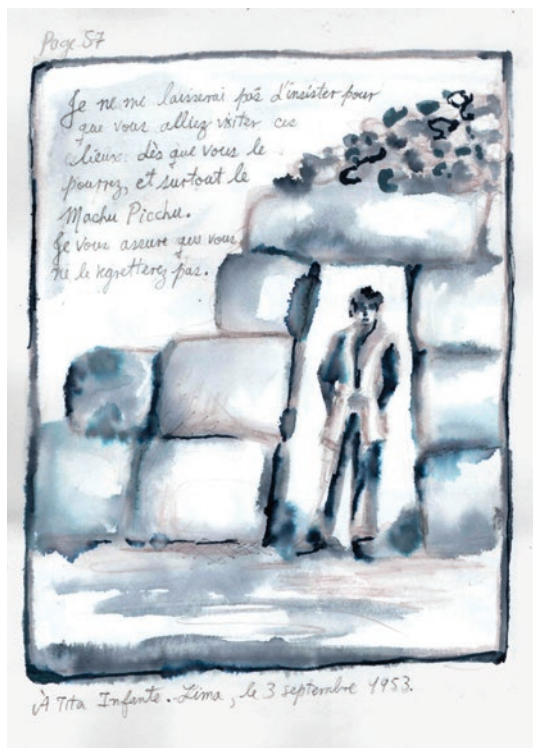 Page 57
Je ne me laisserai pas d'insister pour
que vous alliez visiter ces
lieux dès que vous le
pourrez, et surtout le
Machu Picchu.
Je vous assure que vous
ne le regretterez pas.
À Tita Infante. Lima, le 3 septembre 1953.